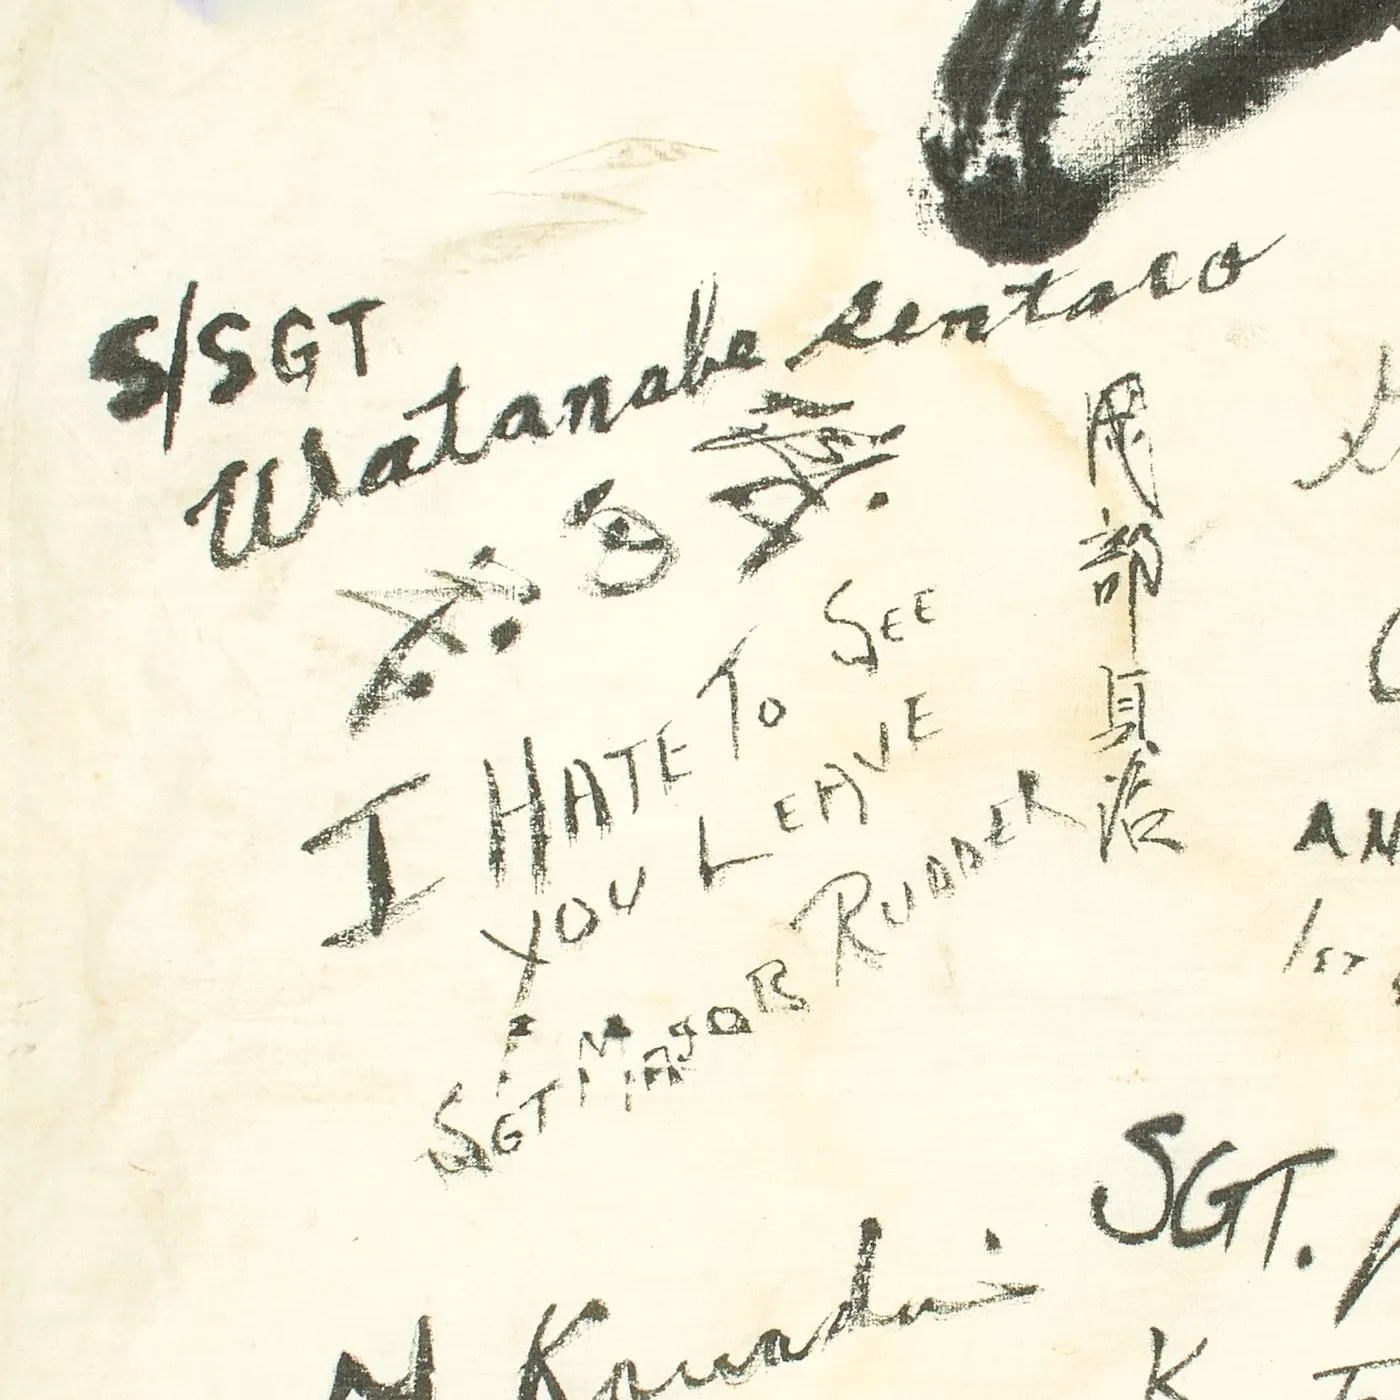 S/SGT
Watanabe Sentaro
I HATE TO SEE
YOU LEAVE
SGT MAJOR RUDDER
岡部貞治
SGT.
AN
1ST
K